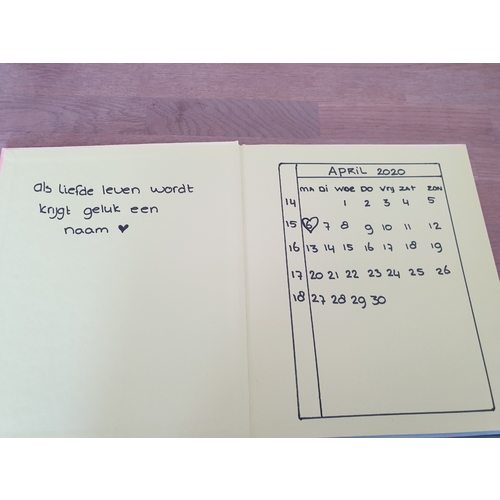 als liefde leven wordt
krijgt geluk een
naam ♥
APRIL 2020
MA DI WOE DO VRIJ ZAT ZON
14 1 2 3 4 5
15 6 7 8 9 10 11 12
16 13 14 15 16 17 18 19
17 20 21 22 23 24 25 26
18 27 28 29 30